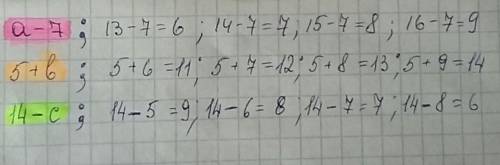 a-7; 13-7=6; 14-7=7; 15-7=8; 16-7=9
5+b; 5+6=11; 5+7=12; 5+8=13; 5+9=14
14-c; 14-5=9; 14-6=8; 14-7=7; 14-8=6